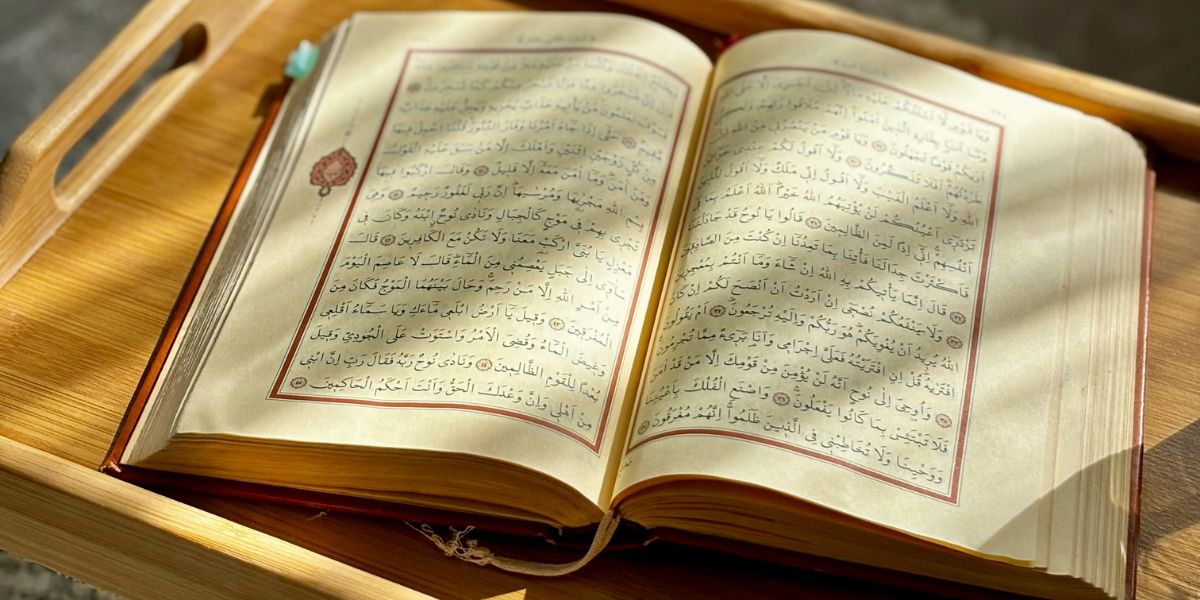 وَيَا قَوْمِ لَا أَسْئَلُكُمْ عَلَيْهِ مَالًا إِنْ أَجْرِيَ إِلَّا عَلَى
وَمَا أَنَا بِطَارِدِ الَّذِينَ آمَنُوا إِنَّهُمْ مُلَاقُوا رَبِّهِمْ وَلَكِنِّي
أَرٰيكُمْ قَوْمًا تَجْهَلُونَ ٢٩ وَيَا قَوْمِ مَنْ يَنْصُرُنِي مِنَ اللهِ
طَرَدْتُهُمْ أَفَلَا تَذَكَّرُونَ ٣٠ وَلَا أَقُولُ لَكُمْ عِنْدِي خَزَائِنُ
اللهِ وَلَا أَعْلَمُ الْغَيْبَ وَلَا أَقُولُ إِنِّي مَلَكٌ وَلَا أَقُولُ لِلَّذِينَ
تَزْدَرِي أَعْيُنُكُمْ لَنْ يُؤْتِيَهُمُ اللهُ خَيْرًا اللهُ أَعْلَمُ بِمَا فِي
أَنْفُسِهِمْ إِنِّي إِذًا لَمِنَ الظَّالِمِينَ ٣١ قَالُوا يَا نُوحُ قَدْ جَادَلْتَنَا
فَأَكْثَرْتَ جِدَالَنَا فَأْتِنَا بِمَا تَعِدُنَا إِنْ كُنْتَ مِنَ الصَّادِقِينَ
٣٢ قَالَ إِنَّمَا يَأْتِيكُمْ بِهِ اللهُ إِنْ شَاءَ وَمَا أَنْتُمْ بِمُعْجِزِينَ
٣٣ وَلَا يَنْفَعُكُمْ نُصْحِي إِنْ أَرَدْتُ أَنْ أَنْصَحَ لَكُمْ إِنْ كَانَ
اللهُ يُرِيدُ أَنْ يُغْوِيَكُمْ هُوَ رَبُّكُمْ وَإِلَيْهِ تُرْجَعُونَ ٣٤ أَمْ يَقُولُونَ
افْتَرٰيهُ قُلْ إِنِ افْتَرَيْتُهُ فَعَلَيَّ إِجْرَامِي وَأَنَا بَرِيءٌ مِمَّا تُجْرِمُونَ
٣٥ وَأُوحِيَ إِلَى نُوحٍ أَنَّهُ لَنْ يُؤْمِنَ مِنْ قَوْمِكَ إِلَّا مَنْ قَدْ آمَنَ
فَلَا تَبْتَئِسْ بِمَا كَانُوا يَفْعَلُونَ ٣٦ وَاصْنَعِ الْفُلْكَ بِأَعْيُنِنَا
وَوَحْيِنَا وَلَا تُخَاطِبْنِي فِي الَّذِينَ ظَلَمُوا إِنَّهُمْ مُغْرَقُونَ ٣٧
وَيَصْنَعُ الْفُلْكَ وَكُلَّمَا مَرَّ عَلَيْهِ مَلَأٌ مِنْ قَوْمِهِ سَخِرُوا مِنْهُ
قَالَ إِنْ تَسْخَرُوا مِنَّا فَإِنَّا نَسْخَرُ مِنْكُمْ كَمَا تَسْخَرُونَ ٣٨
فَسَوْفَ تَعْلَمُونَ مَنْ يَأْتِيهِ عَذَابٌ يُخْزِيهِ وَيَحِلُّ عَلَيْهِ عَذَابٌ
مُقِيمٌ ٣٩ حَتَّى إِذَا جَاءَ أَمْرُنَا وَفَارَ التَّنُّورُ قُلْنَا احْمِلْ فِيهَا
مِنْ كُلٍّ زَوْجَيْنِ اثْنَيْنِ وَأَهْلَكَ إِلَّا مَنْ سَبَقَ عَلَيْهِ الْقَوْلُ
وَمَنْ آمَنَ وَمَا آمَنَ مَعَهُ إِلَّا قَلِيلٌ ٤٠ وَقَالَ ارْكَبُوا فِيهَا
بِسْمِ اللهِ مَجْرٰيهَا وَمُرْسٰيهَا إِنَّ رَبِّي لَغَفُورٌ رَحِيمٌ ٤١ وَهِيَ
تَجْرِي بِهِمْ فِي مَوْجٍ كَالْجِبَالِ وَنَادَى نُوحٌ ابْنَهُ وَكَانَ فِي
مَعْزِلٍ يَا بُنَيَّ ارْكَبْ مَعَنَا وَلَا تَكُنْ مَعَ الْكَافِرِينَ ٤٢ قَالَ
سَآوِي إِلَى جَبَلٍ يَعْصِمُنِي مِنَ الْمَاءِ قَالَ لَا عَاصِمَ الْيَوْمَ
مِنْ أَمْرِ اللهِ إِلَّا مَنْ رَحِمَ وَحَالَ بَيْنَهُمَا الْمَوْجُ فَكَانَ مِنَ
الْمُغْرَقِينَ ٤٣ وَقِيلَ يَا أَرْضُ ابْلَعِي مَاءَكِ وَيَا سَمَاءُ أَقْلِعِي
وَغِيضَ الْمَاءُ وَقُضِيَ الْأَمْرُ وَاسْتَوَتْ عَلَى الْجُودِيِّ وَقِيلَ
بُعْدًا لِلْقَوْمِ الظَّالِمِينَ ٤٤ وَنَادَى نُوحٌ رَبَّهُ فَقَالَ رَبِّ إِنَّ ابْنِي
مِنْ أَهْلِي وَإِنَّ وَعْدَكَ الْحَقُّ وَأَنْتَ أَحْكَمُ الْحَاكِمِينَ ٤٥